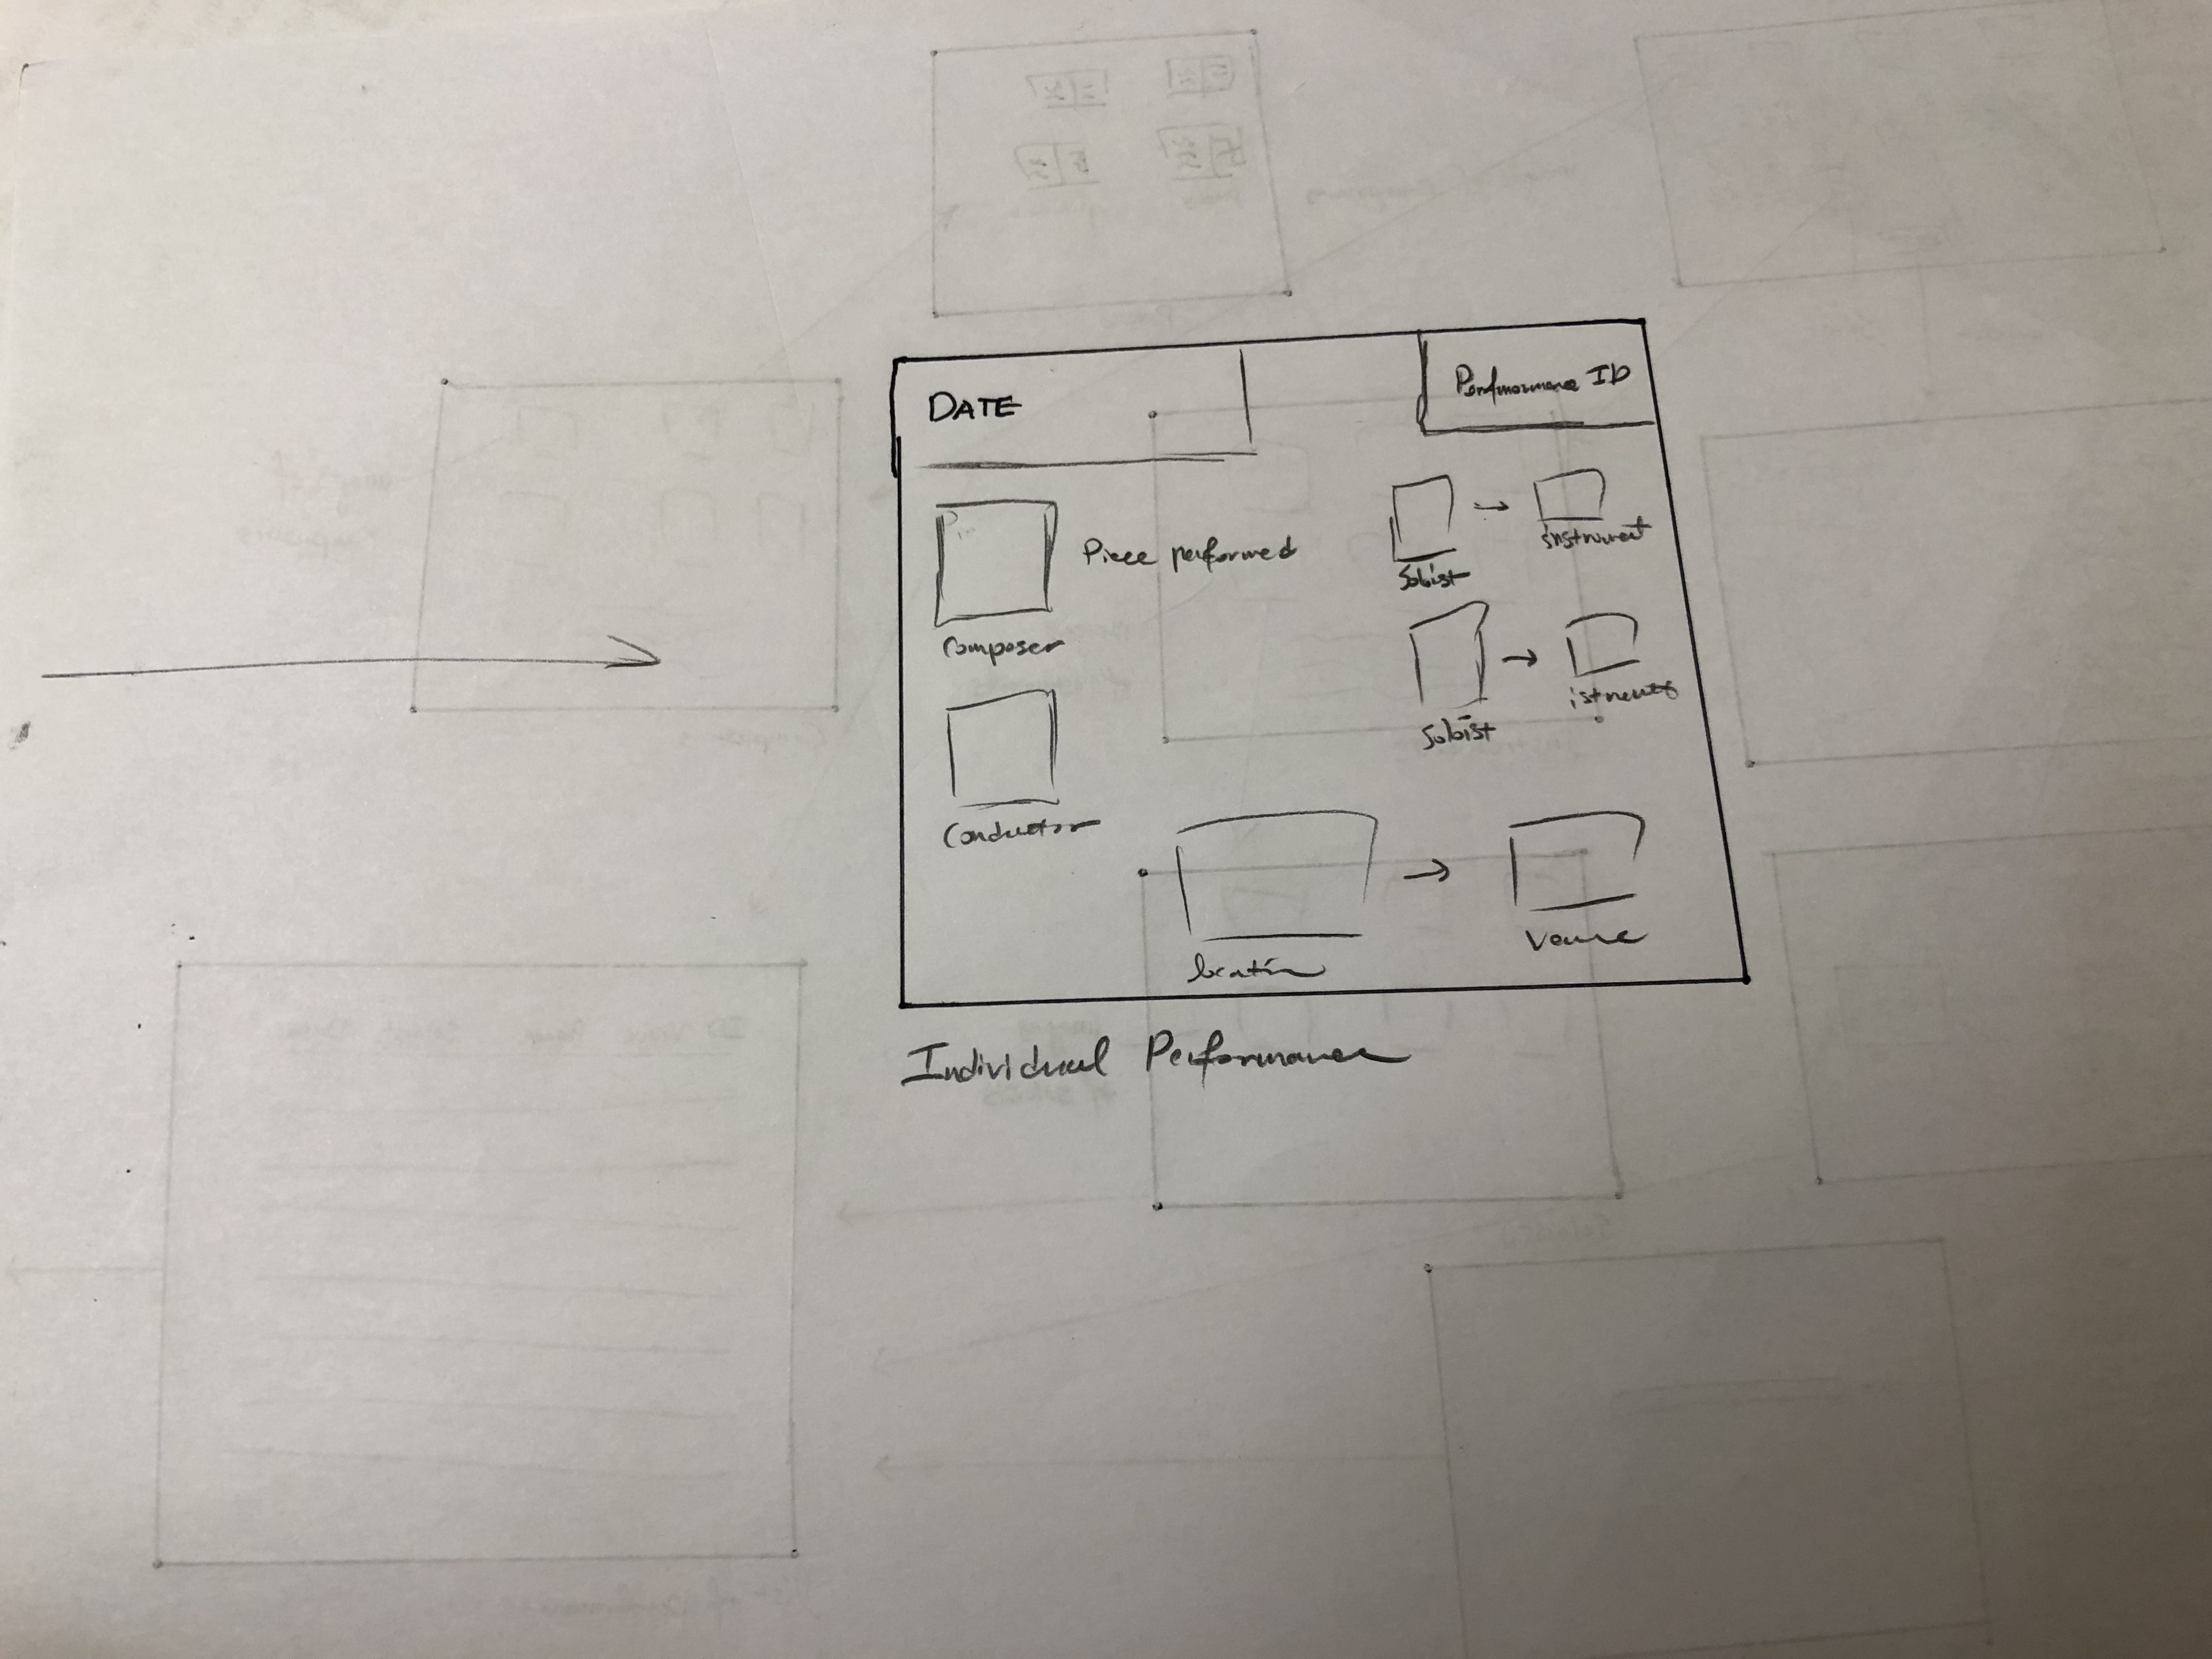 DATE
Performance ID
Piece performed
Composer
Soloist → instrument
Conductor
Soloist → istrument
location → Venue
Individual Performance